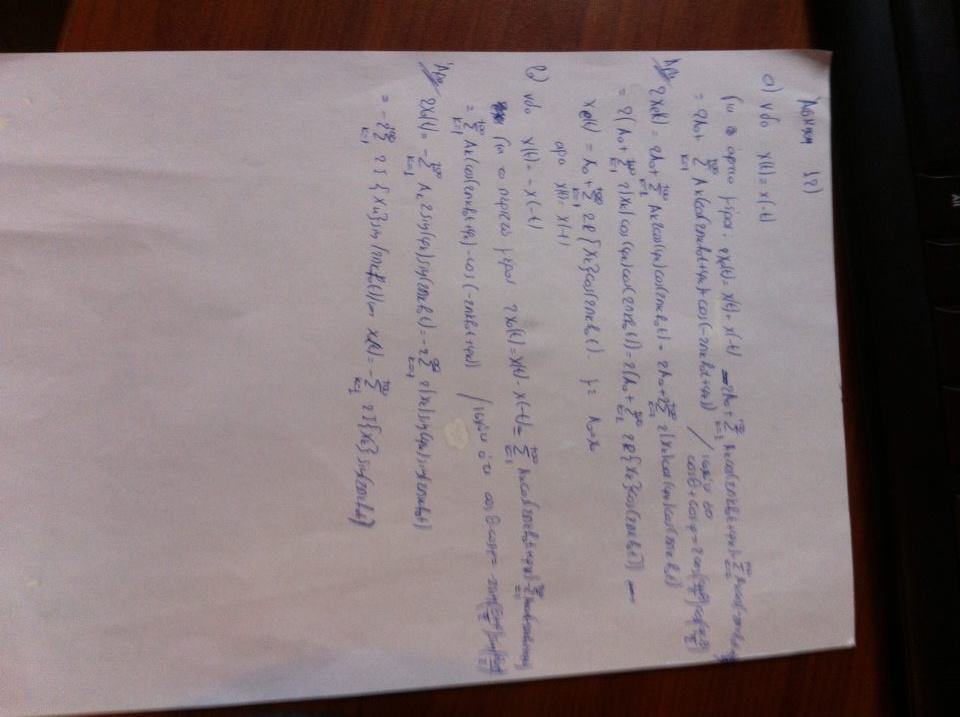 Άσκηση 12)
α) νδο x(t) = x(-t)
Για το άρτιο μέρος: 2xe(t) = x(t) + x(-t) = 2A₀ + Σ_{k=1}^{+∞} Aₖcos(2πkf₀t+φₖ) + Σ_{k=1}^{+∞} Aₖcos(-2πkf₀t
= 2A₀ + Σ_{k=1}^{+∞} Aₖ(cos(2πkf₀t+φₖ) + cos(-2πkf₀t+φₖ)) / ισχύει ότι
cosθ + cosφ = 2cos( )cos( )
Άρα 2xe(t) = 2A₀ + Σ_{k=1}^{+∞} Aₖ2cos(φₖ)cos(2πkf₀t) = 2A₀ + 2Σ_{k=1}^{+∞} 2|Xₖ|cos(φₖ)cos(2πkf₀t)
= 2(A₀ + Σ_{k=1}^{+∞} 2|Xₖ|cos(φₖ)cos(2πkf₀t)) = 2(A₀ + Σ_{k=1}^{+∞} 2R{Xₖ}cos(2πkf₀t))
xe(t) = A₀ + Σ_{k=1}^{+∞} 2R{Xₖ}cos(2πkf₀t). με A₀=X₀
αρα x(t) = x(-t)
β) νδο x(t) = -x(-t)
Για το περιττό μέρος 2x₀(t) = x(t) - x(-t) = Σ_{k=1}^{+∞} Aₖcos(2πkf₀t+φₖ) - Σ_{k=1}^{+∞}
= Σ_{k=1}^{+∞} Aₖ(cos(2πkf₀t+φₖ) - cos(-2πkf₀t+φₖ)) / ισχύει ότι cosθ-cosφ = -2sin( )sin( )
Άρα 2x₀(t) = -Σ_{k=1}^{+∞} Aₖ2sin(φₖ)sin(2πkf₀t) = -2Σ_{k=1}^{+∞} 2|Xₖ|sin(φₖ)sin(2πkf₀t)
= -2Σ_{k=1}^{+∞} 2I{Xₖ}sin(2πkf₀t) x₀(t) = -Σ_{k=1}^{+∞} 2I{Xₖ}sin(2πkf₀t)